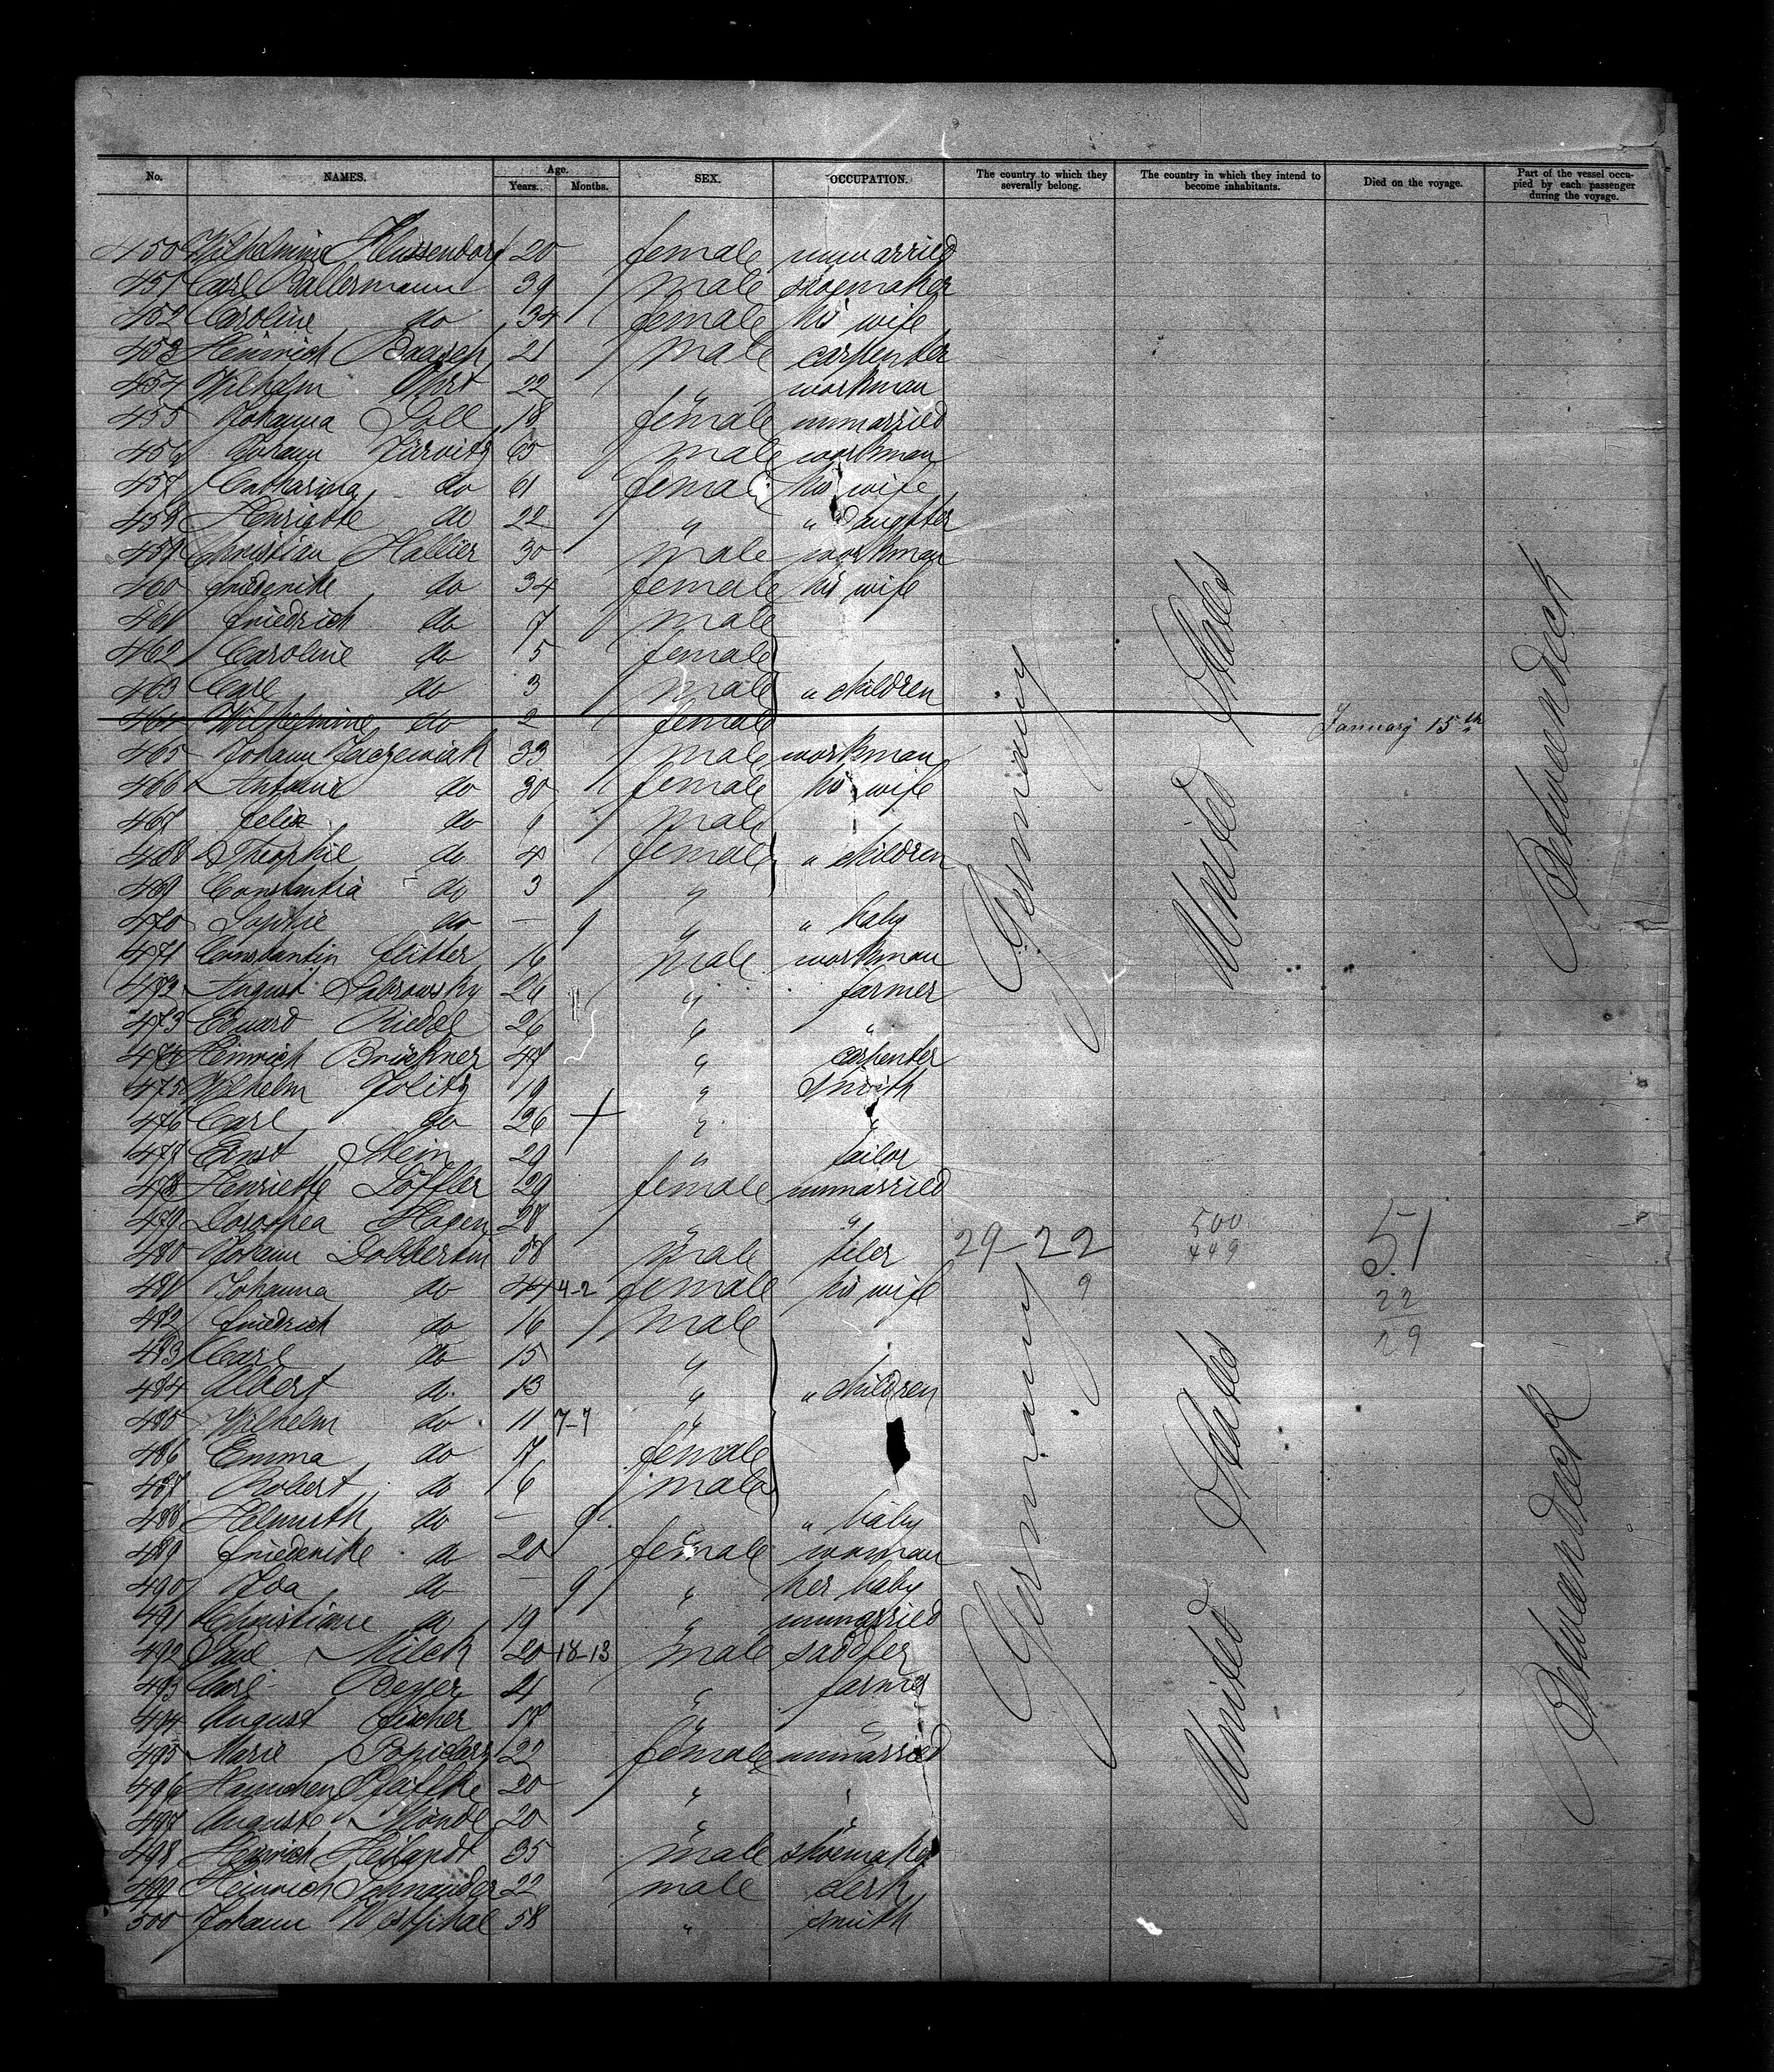 No. NAMES. Age. Years. Months. SEX. OCCUPATION. The country to which they severally belong. The country in which they intend to become inhabitants. Died on the voyage. Part of the vessel occupied by each passenger during the voyage.
450 Wilhelmine 20 female unmarried
451 Carl Ballermann 39 male shoemaker
452 Caroline do 34 female his wife
453 Heinrich Baasch 21 male carpenter
454 Wilhelm 22 " workman
455 Johanna Soll 18 female unmarried
456 Johann 65 male workman
457 Catharina do 61 female his wife
458 Henriette do 22 " " daughter
459 Christian Hallier 30 male workman
460 Friederike do 34 female his wife
461 Friedrich do 7 male
462 Caroline do 5 female
463 Carl do 3 male " children
464 Wilhelmine do 2 female January 15th
465 Johann 33 male workman
466 do 30 female his wife
467 Felix do 6 male
468 Theophil do 4 female " children
469 Constantia do 3 "
470 Sophie do — 9 " " baby
471 Constantin 16 male workman
472 August 24 " farmer
473 Eduard 26 " "
474 Heinrich Brückner 47 " carpenter
475 Wilhelm 19 " smith
476 Carl do 26 " "
477 Ernst Stein 29 " tailor
478 Henriette Löffler 29 female unmarried
479 Dorothea Hagen 28 " "
480 Johann Dobbertin 58 male tiler
481 Johanna do 44 4-2 female his wife
482 Friedrich do 16 male
483 Carl do 15 "
484 Albert do. 13 " " children
485 Wilhelm do 11 7-7 "
486 Emma do 7 female
487 Robert do 6 male
488 Helmuth do — 9 " " baby
489 Friederike do 20 female woman
490 Ida do — 9 " her baby
491 Christiane do 19 " unmarried
492 Paul Milck 20 18-13 male saddler
493 Carl Beyer 21 " farmer
494 August Fischer 17 " "
495 Marie 22 female unmarried
496 Hannchen 20 " "
497 Auguste 20 " "
498 Heinrich Heilandt 35 male shoemaker
499 Heinrich Schnauder 22 male clerk
500 Johann Westphal 58 " smith
Germany
United States
Betweendeck
29-22
9
500
449
51
22
29
Germany
United States
Betweendeck